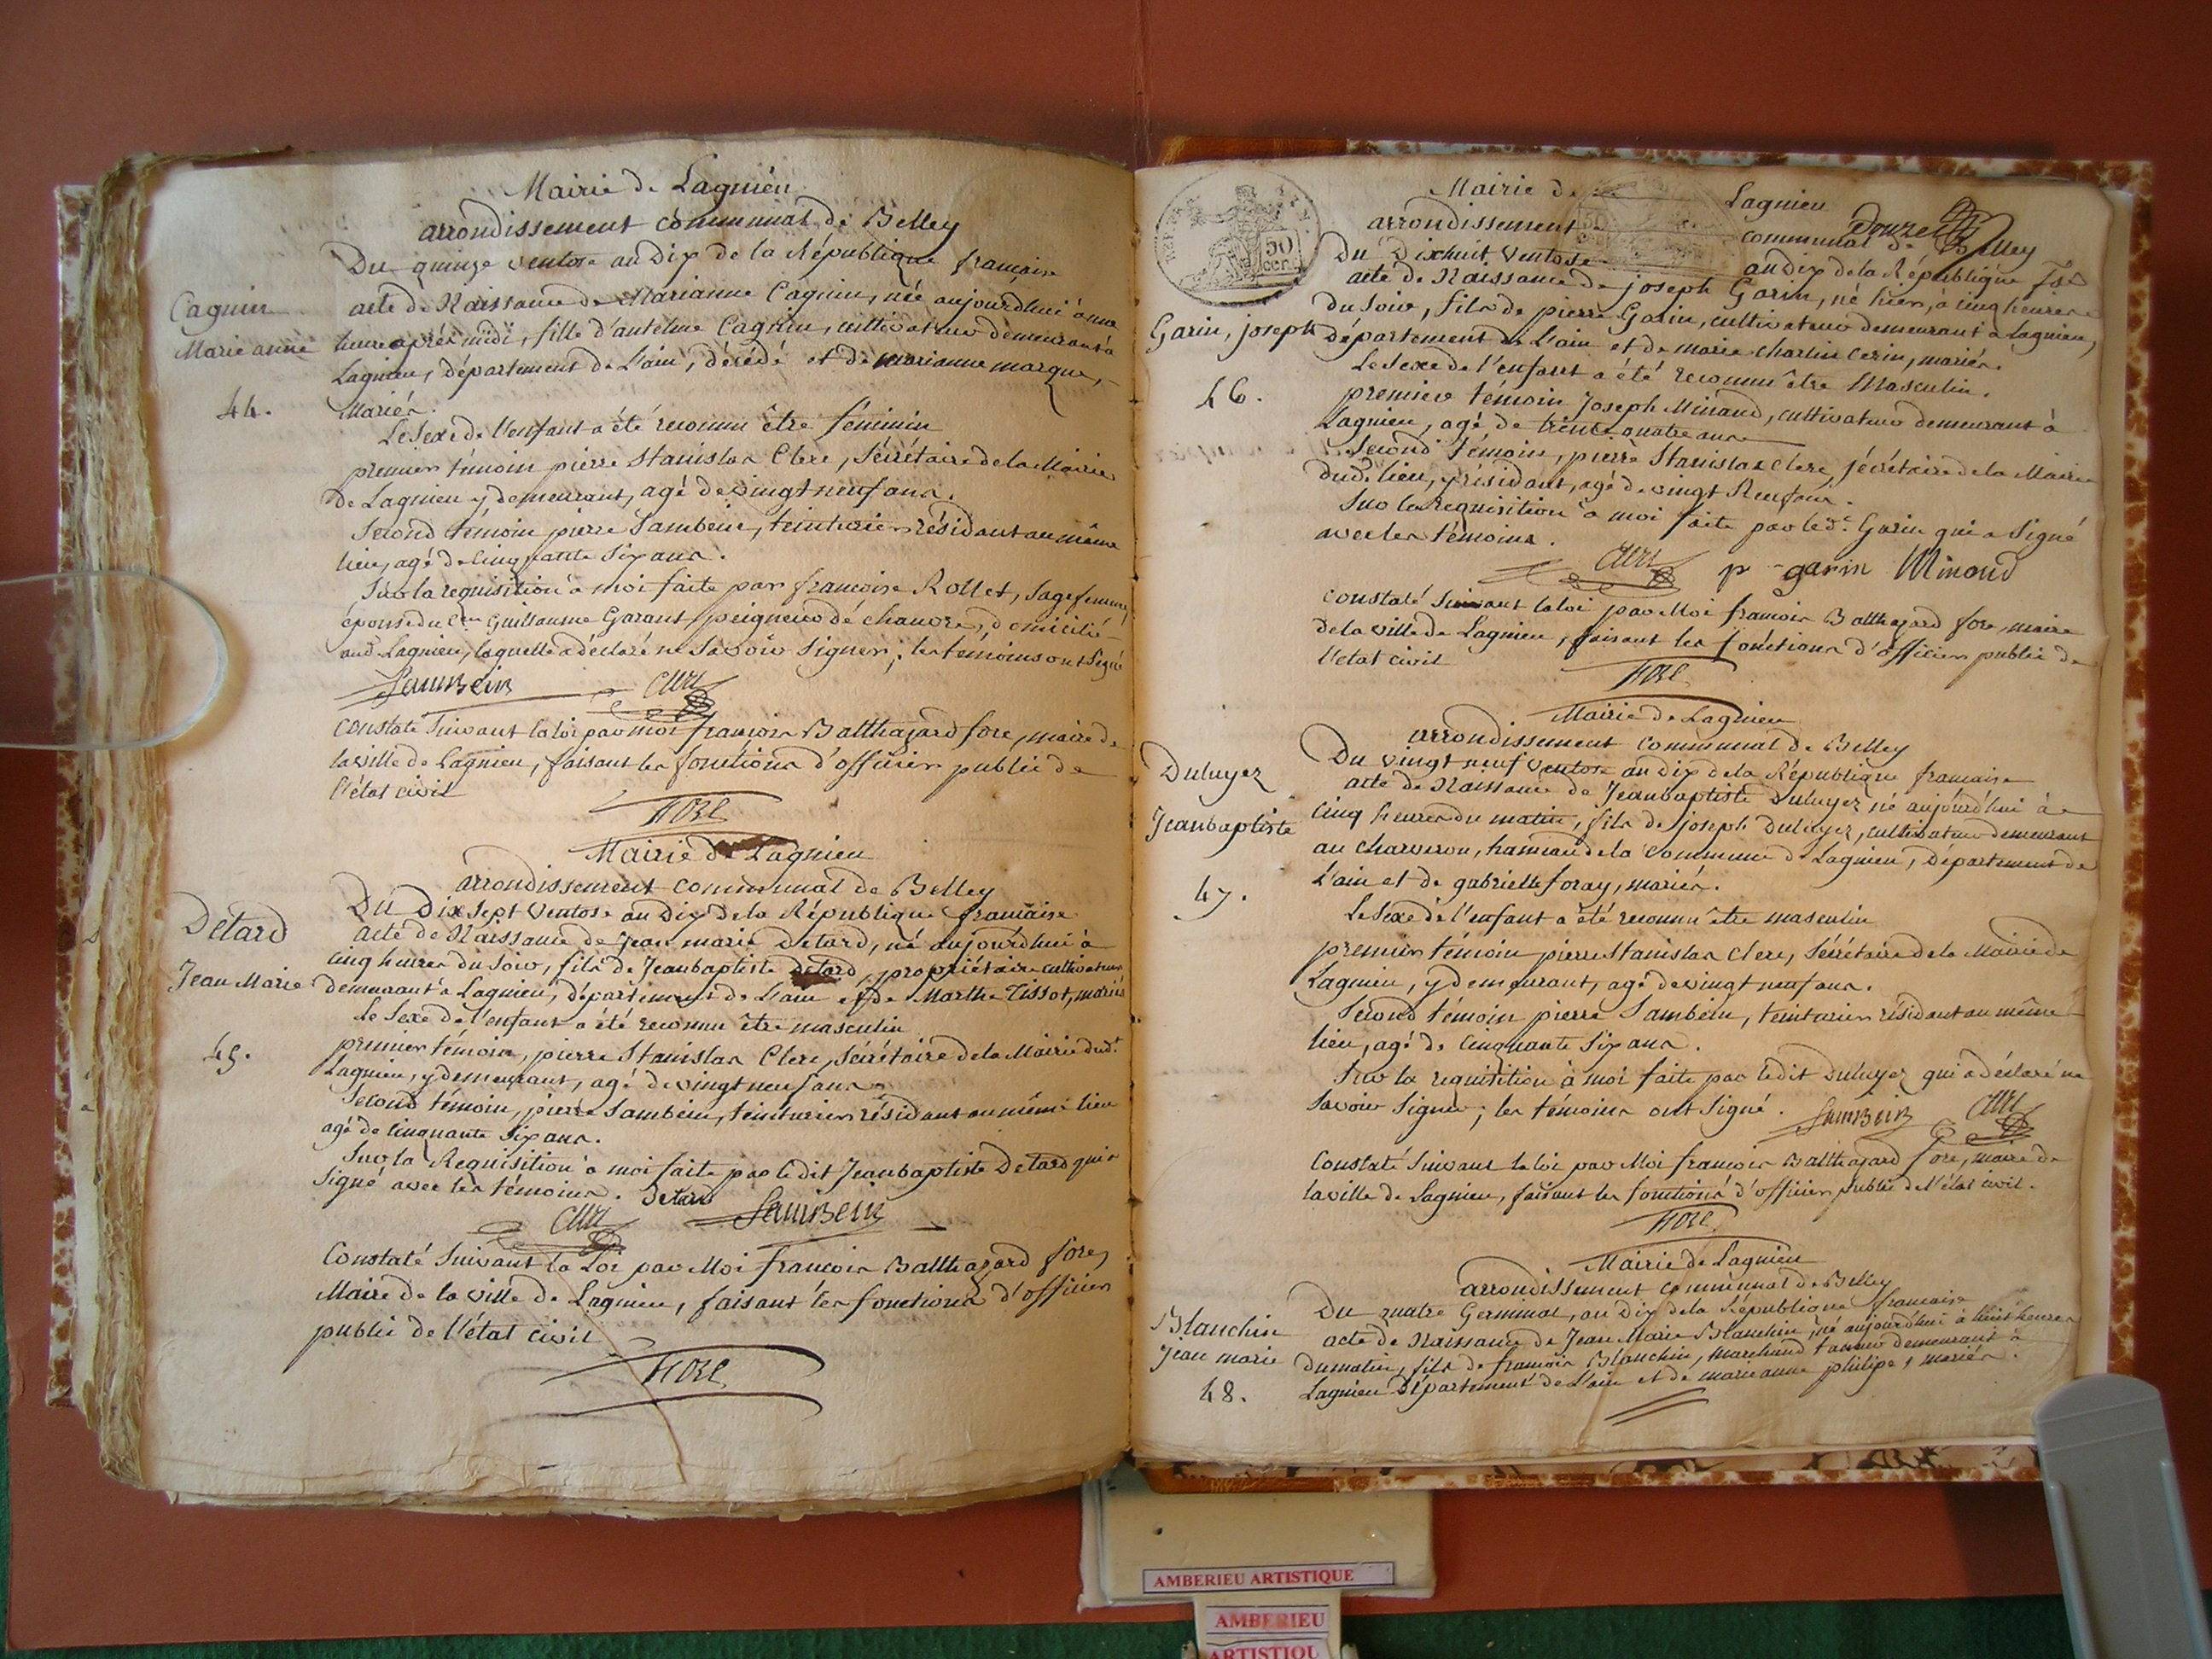 Mairie de Lagnieu
arrondissement communal de Belley
Du quinze ventose an Dix de la République française
Cagnin
Marie anne
44.
acte de Naissance de Marianne Cagnin, née aujourd'hui à une
heure après midi, fille d'antelme Cagnin, cultivateur demeurant à
Lagnieu, département de L'ain, décédé et de marianne marque,
Mariés.
Le Sexe de l'enfant a été reconnu être féminin
premier témoin pierre Stanislas Clerc, Sécrétaire de la Mairie
de Lagnieu y demeurant, agé de vingt neuf ans.
Second témoin pierre Sambein, teinturier résidant au même
lieu, agé de Cinquante Six ans.
Sur la requisition à moi faite par francoise Rollet, Sagefemme,
épouse du Cen Guillaume Garant, peigneur de chanvre, domicilié
aud. Lagnieu, laquelle a déclaré ne Savoir Signer; les témoins ont Signé
SamBein Clerc
Constaté Suivant la loi par moi françois Balthazard fore, maire de
la ville de Lagnieu, faisant les fonctions d'officier public de
l'état civil
FORE
Mairie de Lagnieu
arrondissement communal de Belley
Du Dix Sept Ventose an Dix de la République française
Détard
Jean Marie
45.
acte de Naissance de Jean marie Détard, né aujourd'hui à
cinq heures du Soir, fils de Jean baptiste Détard, propriétaire cultivateur
demeurant à Lagnieu, département de L'ain et de Marthe Tissot, mariés
Le Sexe de l'enfant a été reconnu être masculin
premier témoin, pierre Stanislas Clerc, Sécrétaire de la Mairie dud.t
Lagnieu, y demeurant, agé de vingt neuf ans
Second témoin, pierre Sambein, teinturier résidant au même lieu
agé de Cinquante Six ans.
Sur la Requisition à moi faite par ledit Jean baptiste Détard qui a
Signé avec les témoins. Detard
Clerc SamBein
Constaté Suivant la Loi par Moi françois Balthazard fore,
Maire de la ville de Lagnieu, faisant les fonctions d'officier
public de l'état civil
FORE
Mairie de Lagnieu
arrondissement communal de Belley
50
cen.
Du Dixhuit Ventose an dix de la République fse
Garin, joseph
46.
acte de Naissance de joseph Garin, né hier, à cinq heures
du Soir, fils de pierre Garin, cultivateur demeurant à Lagnieu,
Département de L'ain et de marie Charlin Cerin, mariés.
Le Sexe de l'enfant a été reconnu être Masculin.
premier témoin Joseph Minand, cultivateur demeurant à
Lagnieu, agé de trente quatre ans
Second témoin, pierre Stanislas Clerc, Sécrétaire de la Mairie
dud. lieu, y résidant, agé de vingt Neuf ans.
Sur la requisition à moi faite par led. Garin qui a Signé
avec les témoins.
Clerc p garin Minand
Constaté Suivant la loi par Moi francois Balthazard fore, maire
de la ville de Lagnieu, faisant les fonctions d'officier public de
l'etat civil
FORE
Mairie de Lagnieu
arrondissement communal de Belley
Du vingt neuf Ventose an dix de la République francaise
Duluyez
Jean baptiste
47.
acte de Naissance de Jean baptiste Duluyez né aujourd'hui à
Cinq heures du matin, fils de joseph Duluyez, cultivateur demeurant
au Charveron, hameau de la Commune de Lagnieu, Département de
L'ain et de gabrielle foray, mariés.
Le Sexe de l'enfant a été reconnu être masculin
premier témoin pierre Stanislas Clerc, Sécrétaire de la Mairie de
Lagnieu, y demeurant, agé de vingt neuf ans.
Second témoin pierre Sambein, teinturier résidant au même
lieu, agé de Cinquante Six ans.
Sur la requisition à moi faite par ledit Duluyez qui a déclaré ne
Savoir Signer; les témoins ont Signé. SamBein Clerc
Constaté Suivant la loi par Moi francois Balthazard fore, maire de
la ville de Lagnieu, faisant les fonctions d'officier public de l'état civil.
FORE
Mairie de Lagnieu
arrondissement communal de Belley
Du quatre Germinal, an Dix de la République francaise
Blanchin
Jean marie
48.
acte de Naissance de Jean Marie Blanchin, né aujourd'hui à huit heures
du matin, fils de francois Blanchin, Marchand tanneur demeurant à
Lagnieu Département de L'ain et de marie anne philipe, mariés.
AMBERIEU ARTISTIQUE
AMBERIEU
ARTISTIQU